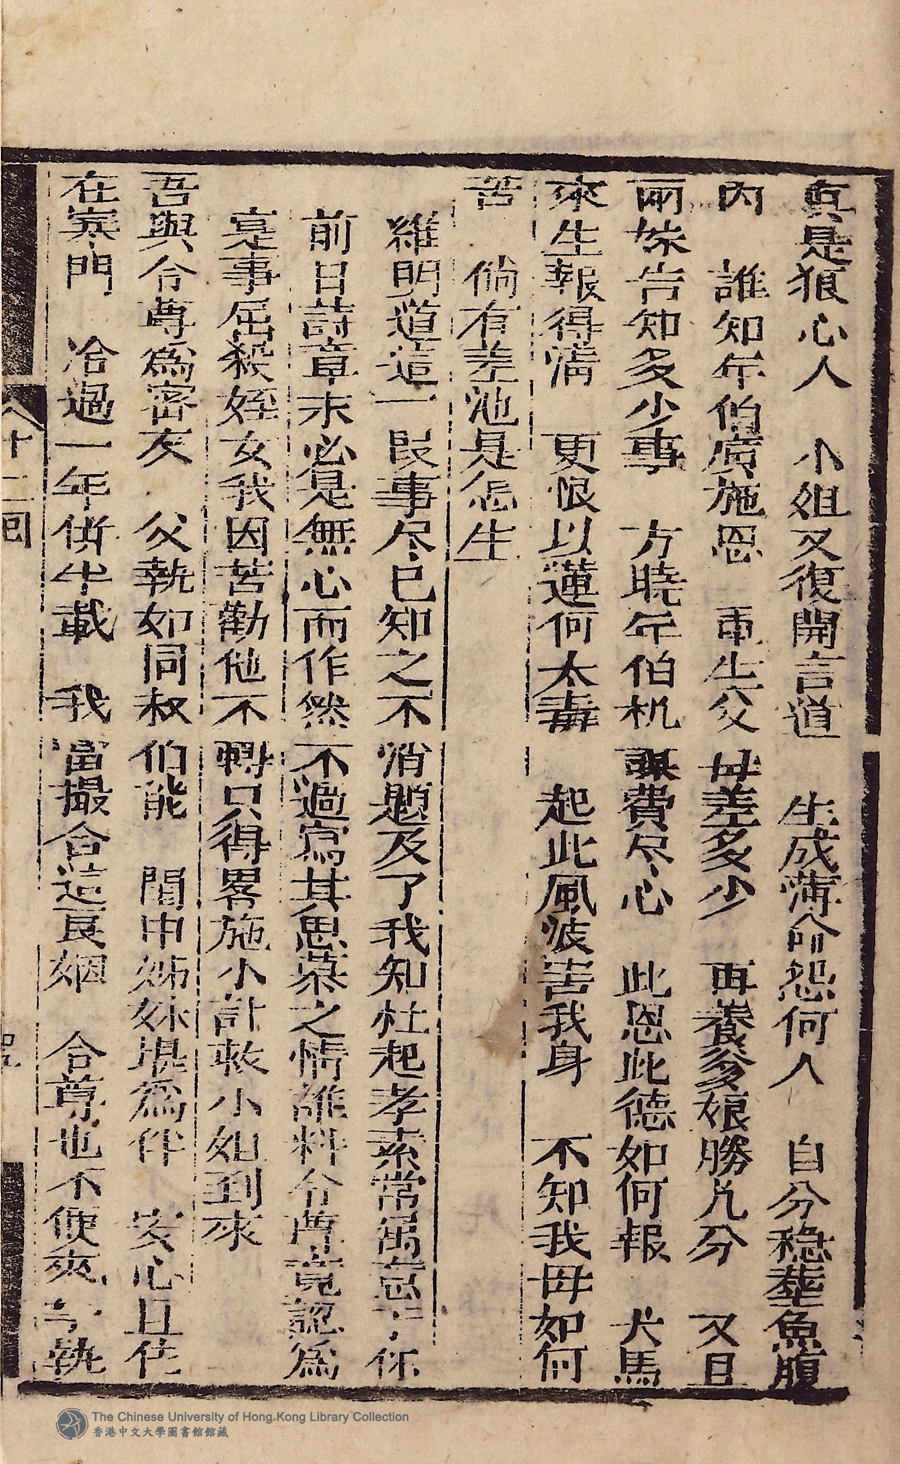 真是狼心人　小姐又復開言道　生成薄命怨何人　自分穏塟魚腹
內　誰知年伯廣施恩　重生父母差多少　再養爹娘勝九分　又且
兩妹告知多少事　方曉年伯机謀費尽心　此恩此德如何報　犬馬
來生報得清　更恨以蓮何太毒　起此風波害我身　不知我母如何
苦　倘有差池是怎生
維明道這一段事尽已知之不消題及了我知杜起孝素常寓意于你
前日詩章末必是無心而作然不過寫其思慕之情誰料令尊竟認爲
寔事屈殺姪女我因苦勸他不轉只得畧施小計救小姐到來
吾與令尊爲密友　父執如同叔伯能　閨中姊妹堪爲伴　安心且住
在寒門　洽過一年併半載　我當撮合這良姻　令尊也不便爽今執
十二回
The Chinese University of Hong Kong Library Collection
香港中文大學圖書館館藏